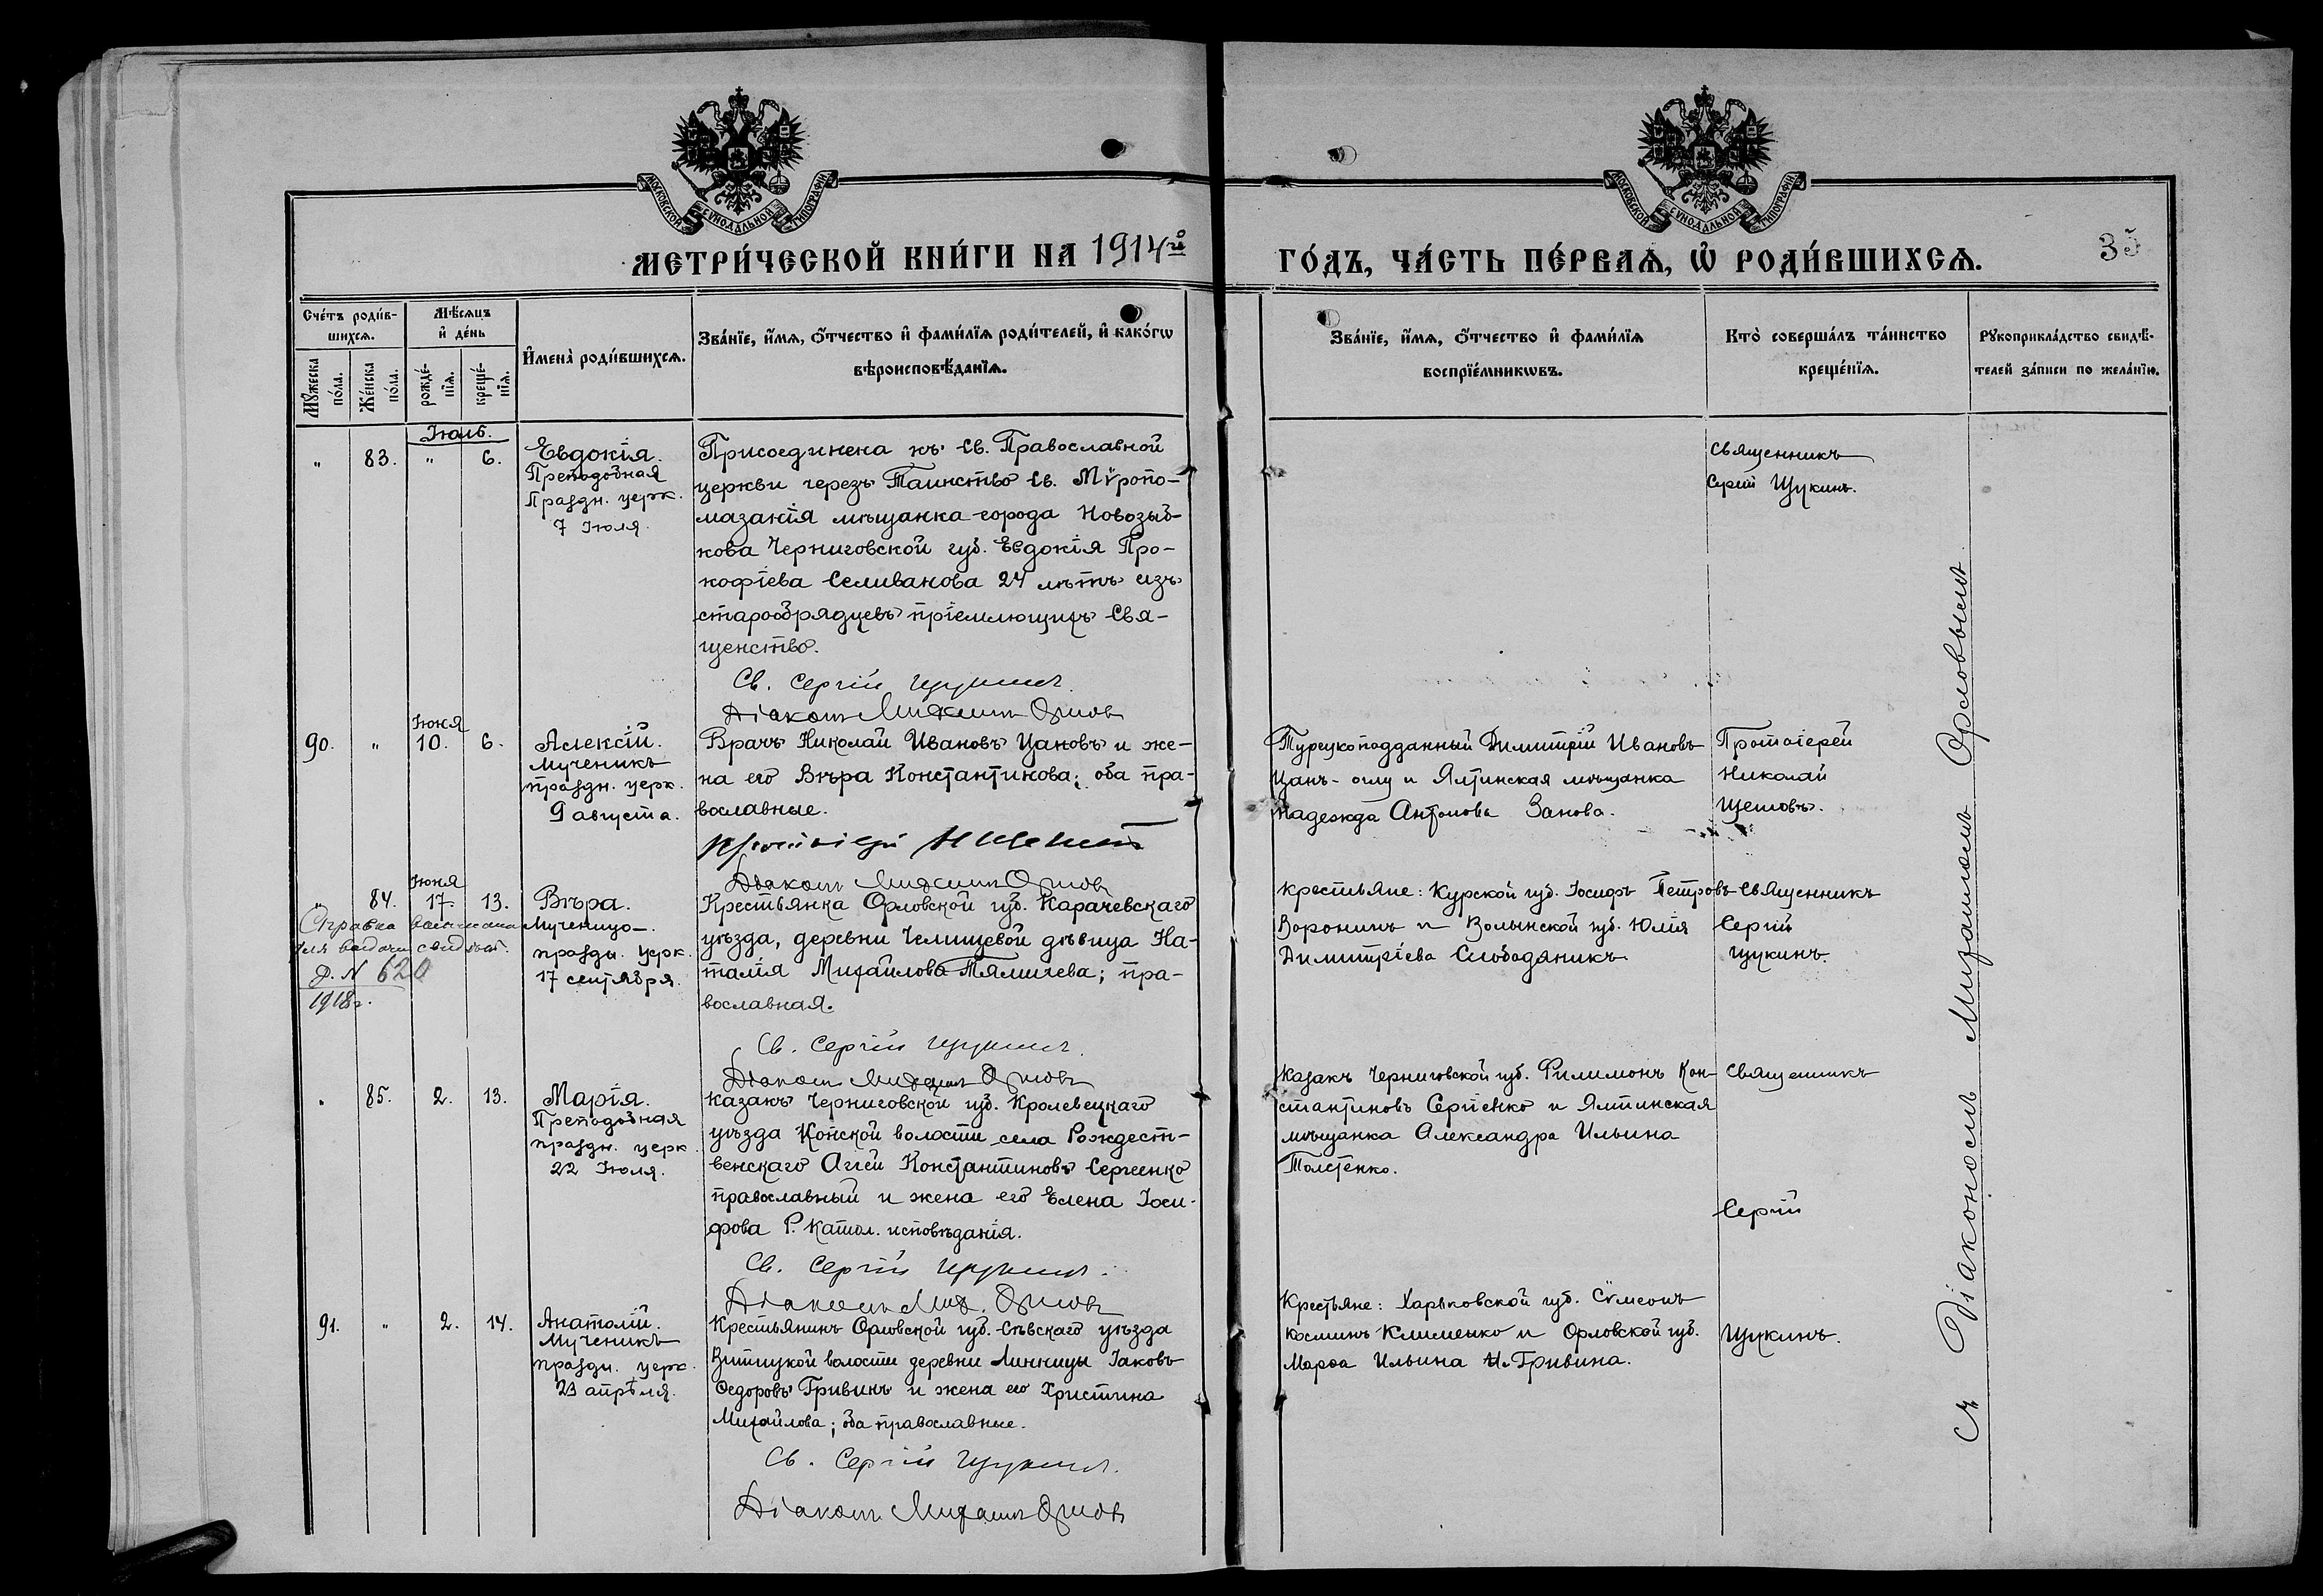 МОСКОВСКОЙ СѴНОДАЛЬНОЙ ТИПОГРАФІИ
МОСКОВСКОЙ СѴНОДАЛЬНОЙ ТИПОГРАФІИ
МЕТРИ́ЧЕСКОЙ КНИ́ГИ НА 1914й
ГО́ДЪ, ЧА́СТЬ ПЕ́РВАѦ, Ѡ҆ РОДИ́ВШИХСѦ.
35
Сче́тъ роди́в-
шихсѧ.
Мꙋ́жеска по́ла.
Же́нска по́ла.
Мѣ́сѧцъ
и҆ де́нь
рожде́-нїѧ.
креще́-нїѧ.
И҆мена̀ роди́вшихсѧ.
Зва́нїе, и҆́мѧ, ѻ҆́тчество и҆ фами́лїѧ роди́телей, и҆ како́гѡ
вѣроисповѣ́данїѧ.
Зва́нїе, и҆́мѧ, ѻ҆́тчество и҆ фами́лїѧ
воспрїе́мникѡвъ.
Кто̀ соверша́лъ та́инство
креще́нїѧ.
Рꙋкоприкла́дство свидѣ́-
телей за́писи по жела́нїю.
Іюль.
" 83. " 6.
Евдокія.
Преподобная
Праздн. церк.
7 Іюля.
Присоединена къ Св. Православной
церкви черезъ Таинство Св. Мѵропо-
мазанія мѣщанка города Новозыб-
кова Черниговской губ. Евдокія Про-
кофіева Селиванова 24 лѣтъ изъ
старообрядцевъ пріемлющихъ Свя-
щенство.
Св. Сергій Щукинъ.
Діаконъ Михаилъ Орловъ
Священникъ
Сергій Щукинъ.
Іюня
90. " 10. 6.
Алексій.
Мученикъ
праздн. церк.
9 августа.
Врачъ Николай Ивановъ Цановъ и же-
на его Вѣра Константинова; оба пра-
вославные.
Діаконъ Михаилъ Орловъ
Турецкоподданный Димитрій Ивановъ
Цанъ-оглу и Ялтинская мѣщанка
Надежда Антонова Занова.
Протоіерей
Николай
Щегловъ.
Іюня
" 84. 17. 13.
Справка
для выдачи свидѣт.
Д. N 620
1918 г.
Вѣра.
Мученица.
праздн. церк.
17 сентября.
Крестьянка Орловской губ. Карачевскаго
уѣзда, деревни Челищевой дѣвица На-
талія Михайлова Тямичева; пра-
вославная.
Св. Сергій Щукинъ.
Діаконъ Михаилъ Орловъ
Крестьяне: Курской губ. Іосифъ Петровъ
Воронинъ и Волынской губ. Юлія
Димитріева Слободяникъ
Священникъ
Сергій
Щукинъ.
" 85. 2. 13.
Марія.
Преподобная
праздн. церк.
22 Іюля.
Казакъ Черниговской губ. Кролевецкаго
уѣзда Копской волости села Рождест-
венскаго Аггей Константиновъ Сергіенко
православный и жена его Елена Іоси-
фова Р. Катол. исповѣданія.
Св. Сергій Щукинъ.
Діаконъ Мих. Орловъ
Казакъ Черниговской губ. Филимонъ Кон-
стантиновъ Сергіенко и Ялтинская
мѣщанка Александра Ильина
Толстенко.
Священникъ
Сергій
91. " 2. 14.
Анатолій.
Мученикъ
праздн. церк.
23 апрѣля.
Крестьянинъ Орловской губ. Сѣвскаго уѣзда
волости деревни Линницы Іаковъ
Ѳедоровъ Гривинъ и жена его Христина
Михайлова; оба православные.
Св. Сергій Щукинъ.
Діаконъ Михаилъ Орловъ
Крестьяне: Харьковской губ. Сѵмеонъ
Косминъ Клименко и Орловской губ.
Марѳа Ильина Гривина.
Щукинъ.
Съ Діакономъ Михаиломъ Орловымъ